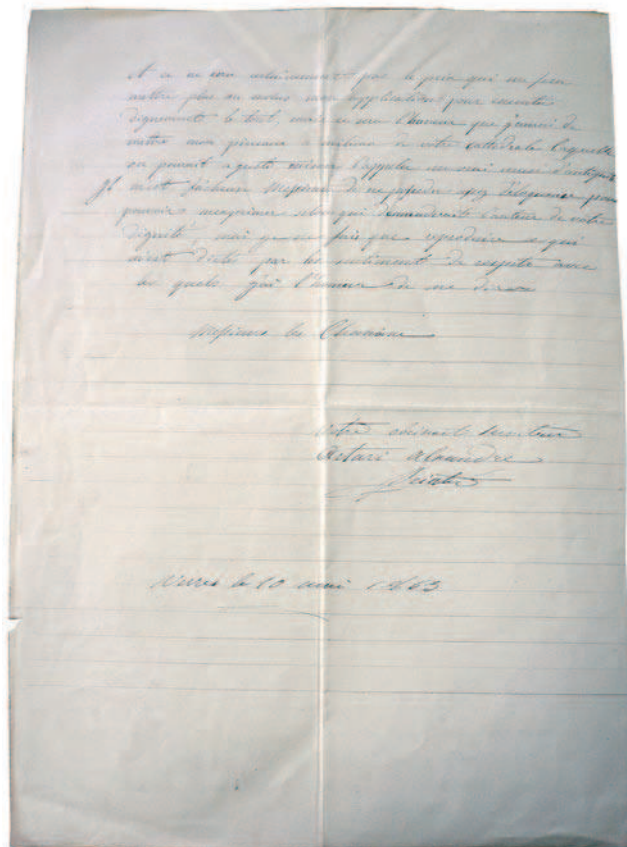 et ce ne sera certainement pas le prix qui me fera
mettre plus ou moins mon application pour executer
dignement le tout, mais ce sera l'honneur que j'aurai de
mettre mon pinceau à de votre cathédrale laquelle
on pourrait a juste l'appeler un vrai d'antiquité
Il m'est facheux Messieurs de ne posseder assez d'éloquence pour
pouvoir m'exprimer selon qui demanderait l'auteur de votre
dignité, mais je ne fais que reproduire ce qui
m'est dicté par les sentiment de respect avec
les quels j'ai l'honneur de me dire
Messieurs les Chanoines
votre obéissant Serviteur
Artari Alexandre
Peintre
Verrès le 10 mai 1863